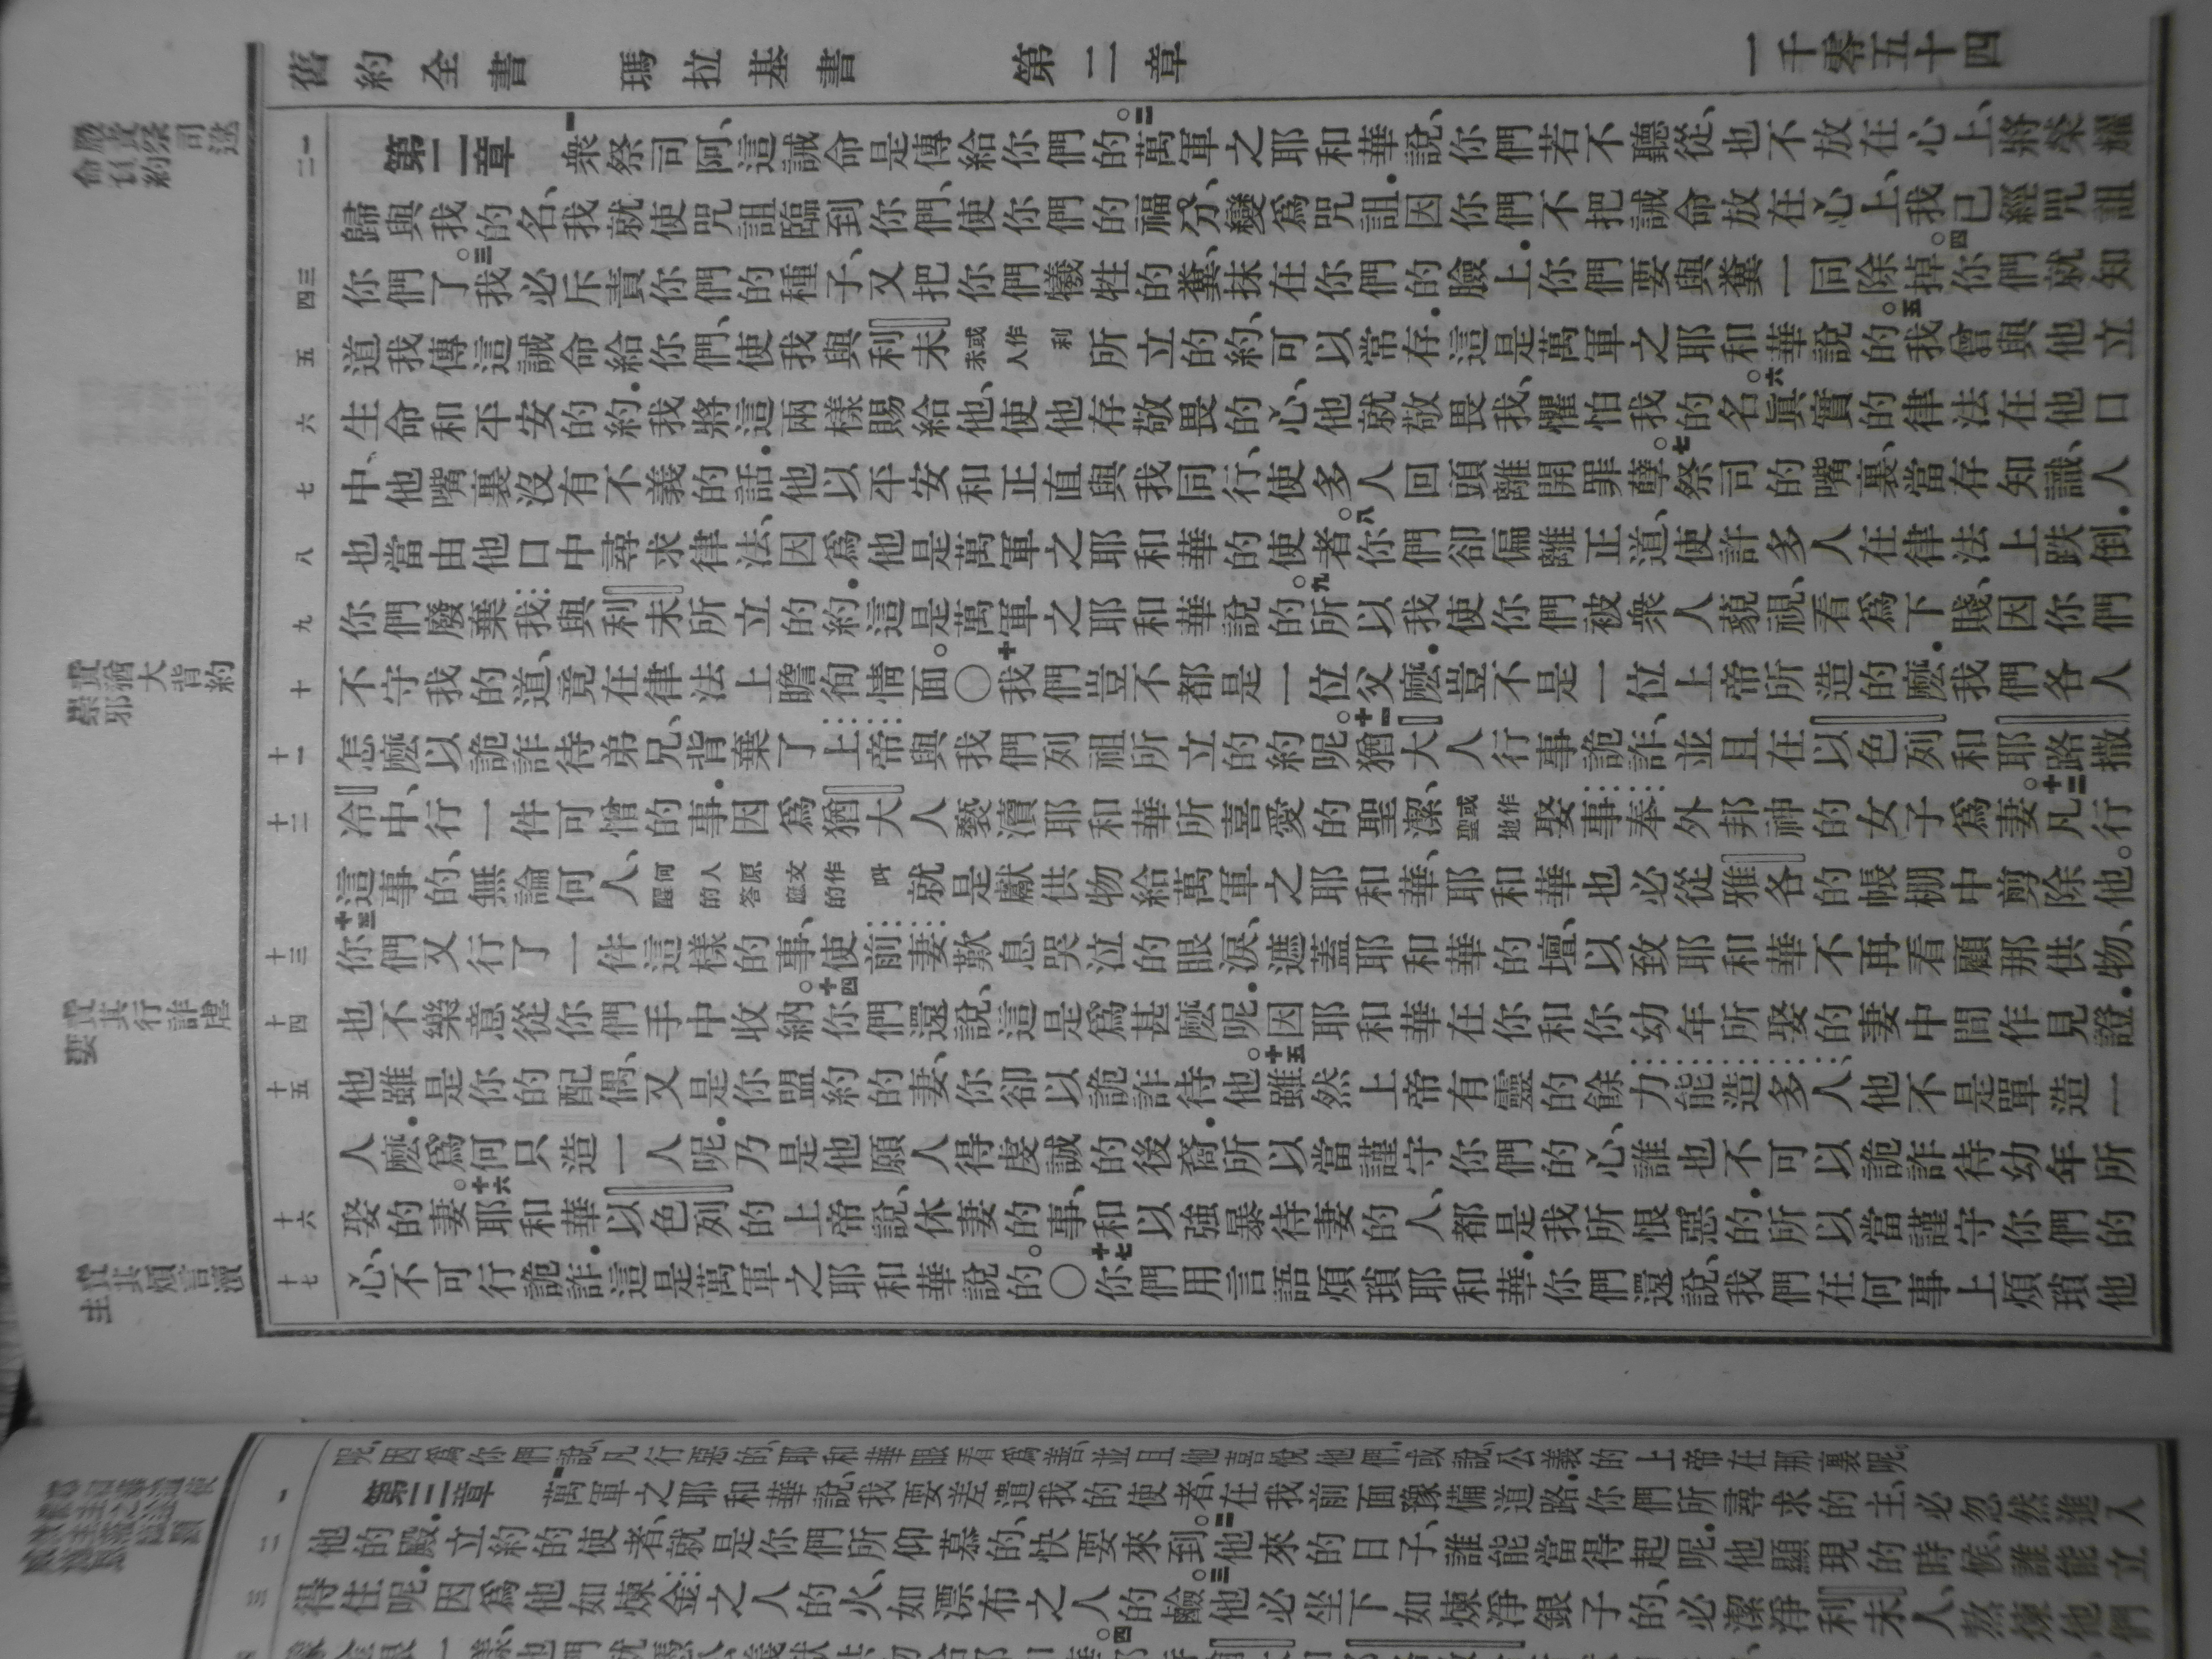 舊約全書 瑪拉基書 第二章 一千零五十四
責猶大背約
崇邪
責其行詐虐
妻
責其煩言瀆
主
一二 三四 五 六 七 八 九 十 十一 十二 十三 十四 十五 十六 十七
第二章 一衆祭司阿、這誡命是傳給你們的。二萬軍之耶和華說、你們若不聽從、也不放在心上、將榮耀
歸與我的名、我就使咒詛臨到你們、使你們的福分、變爲咒詛．因你們不把誡命放在心上、我已經咒詛
你們了。三我必斥責你們的種子、又把你們犧牲的糞、抹在你們的臉上．你們要與糞一同除掉。四你們就知
道我傳這誡命給你們、使我與利未或作利未人所立的約、可以常存．這是萬軍之耶和華說的。五我曾與他立
生命和平安的約．我將這兩樣賜給他、使他存敬畏的心、他就敬畏我、懼怕我的名。六眞實的律法在他口
中、他嘴裏沒有不義的話．他以平安和正直與我同行、使多人回頭離開罪孽。七祭司的嘴裏、當存知識、人
也當由他口中尋求律法、因爲他是萬軍之耶和華的使者。八你們卻偏離正道、使許多人在律法上跌倒．
你們廢棄我與利未所立的約．這是萬軍之耶和華說的。九所以我使你們被衆人藐視、看爲下賤．因你們
不守我的道、竟在律法上瞻徇情面。○十我們豈不都是一位父麽．豈不是一位上帝所造的麽．我們各人
怎麽以詭詐待弟兄、背棄了上帝與我們列祖所立的約呢。十一猶大人行事詭詐、並且在以色列和耶路撒
冷中、行一件可憎的事．因爲猶大人褻瀆耶和華所喜愛的聖潔、或作聖地娶事奉外邦神的女子爲妻。十二凡行
這事的、無論何人、何人原文作叫醒的答應的就是獻供物給萬軍之耶和華、耶和華也必從雅各的帳棚中剪除他。
十三你們又行了一件這樣的事、使前妻歎息哭泣的眼淚、遮蓋耶和華的壇、以致耶和華不再看顧那供物、
也不樂意從你們手中收納。十四你們還說、這是爲甚麽呢．因耶和華在你和你幼年所娶的妻中間作見證．
他雖是你的配偶、又是你盟約的妻、你卻以詭詐待他。十五雖然上帝有靈的餘力能造多人、他不是單造一
人麽．爲何只造一人呢．乃是他願人得虔誠的後裔．所以當謹守你們的心、誰也不可以詭詐待幼年所
娶的妻。十六耶和華以色列的上帝說、休妻的事、和以強暴待妻的人、都是我所恨惡的．所以當謹守你們的
心、不可行詭詐．這是萬軍之耶和華說的。○十七你們用言語煩瑣耶和華．你們還說、我們在何事上煩瑣他
呢、因爲你們說、凡行惡的、耶和華眼看爲善、並且他喜悅他們．或說、公義的上帝在那裏呢。
一 二 三
第三章 一萬軍之耶和華說、我要差遣我的使者、在我前面豫備道路．你們所尋求的主、必忽然進入
他的殿．立約的使者、就是你們所仰慕的、快要來到。二他來的日子、誰能當得起呢．他顯現的時候、誰能立
得住呢．因爲他如煉金之人的火、如漂布之人的鹼。三他必坐下如煉淨銀子的、必潔淨利未人、熬煉他們